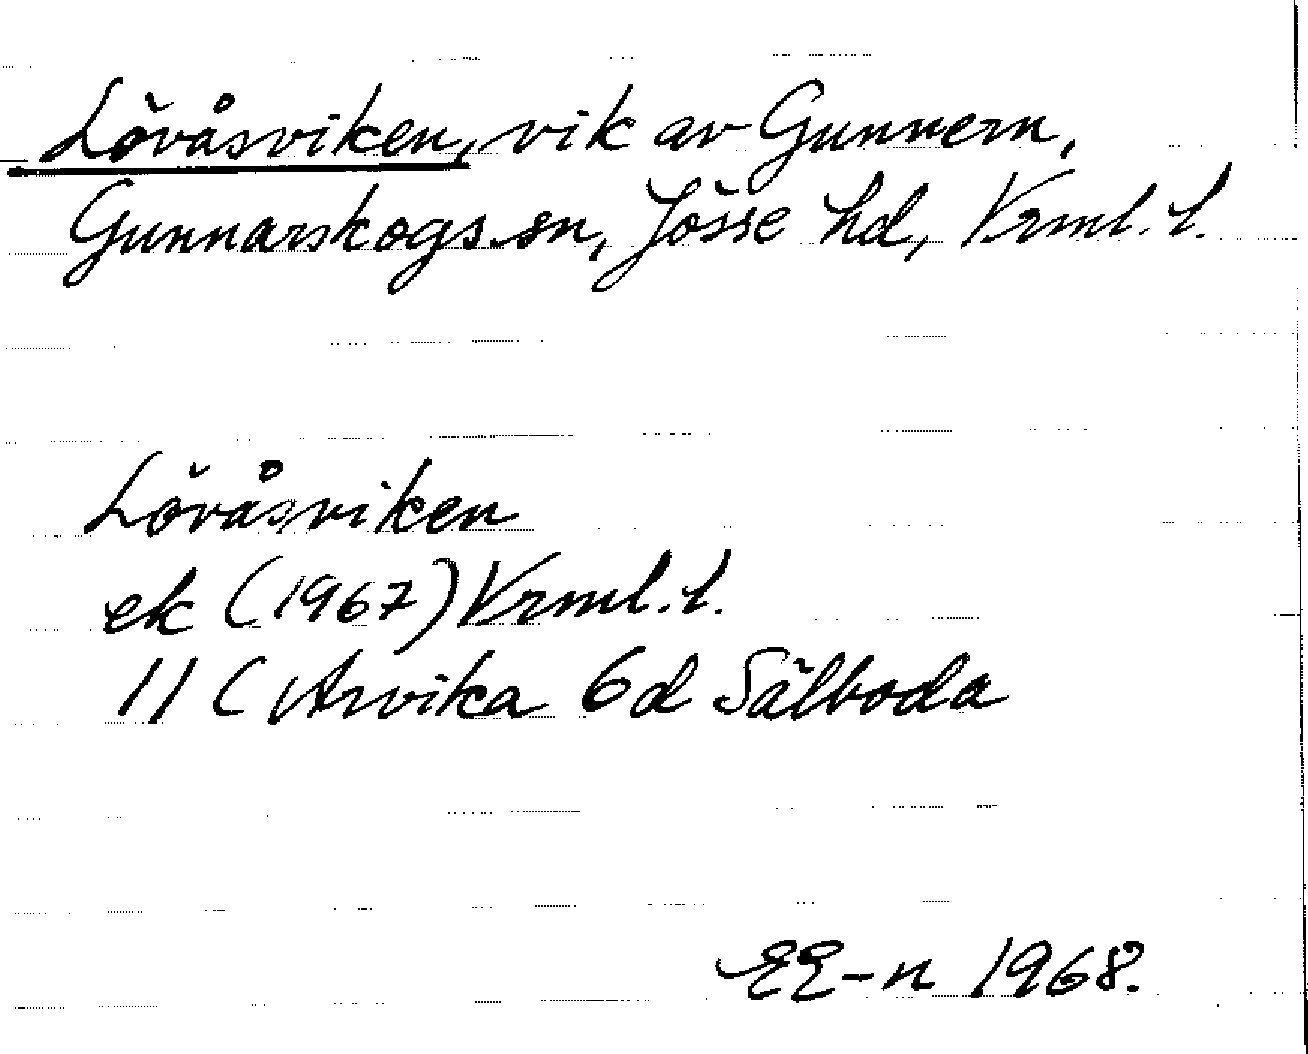 Lövåsviken, vik av Gunnern,
Gunnarskogs sn, Jösse hd, Vrml. l.
Lövåsviken
ek (1967) Vrml. l.
11 C Arvika 6d Sälboda
EE-n 1968.